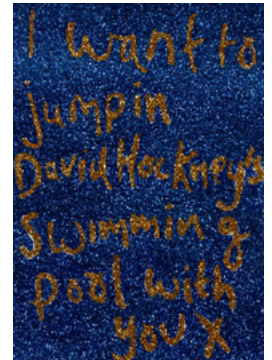 I want to
jump in
David Hockney's
swimming
pool with
you x